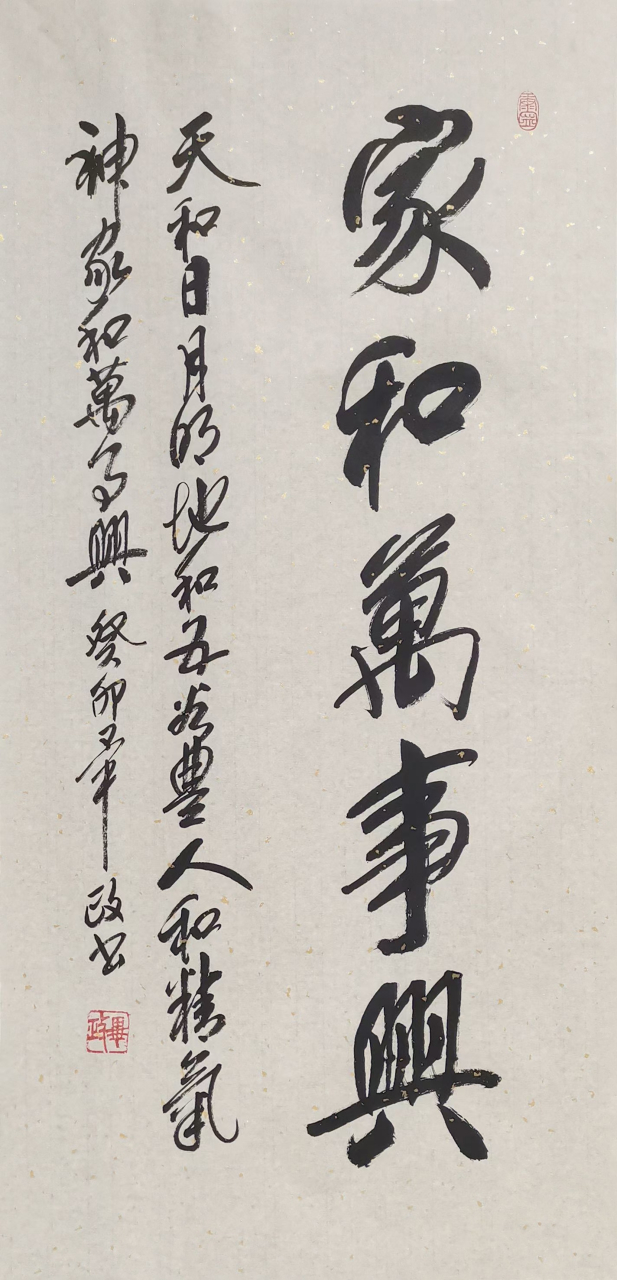 家和萬事興
天和日月明地和五谷豐人和精氣
神家和萬事興 癸卯 年 政書